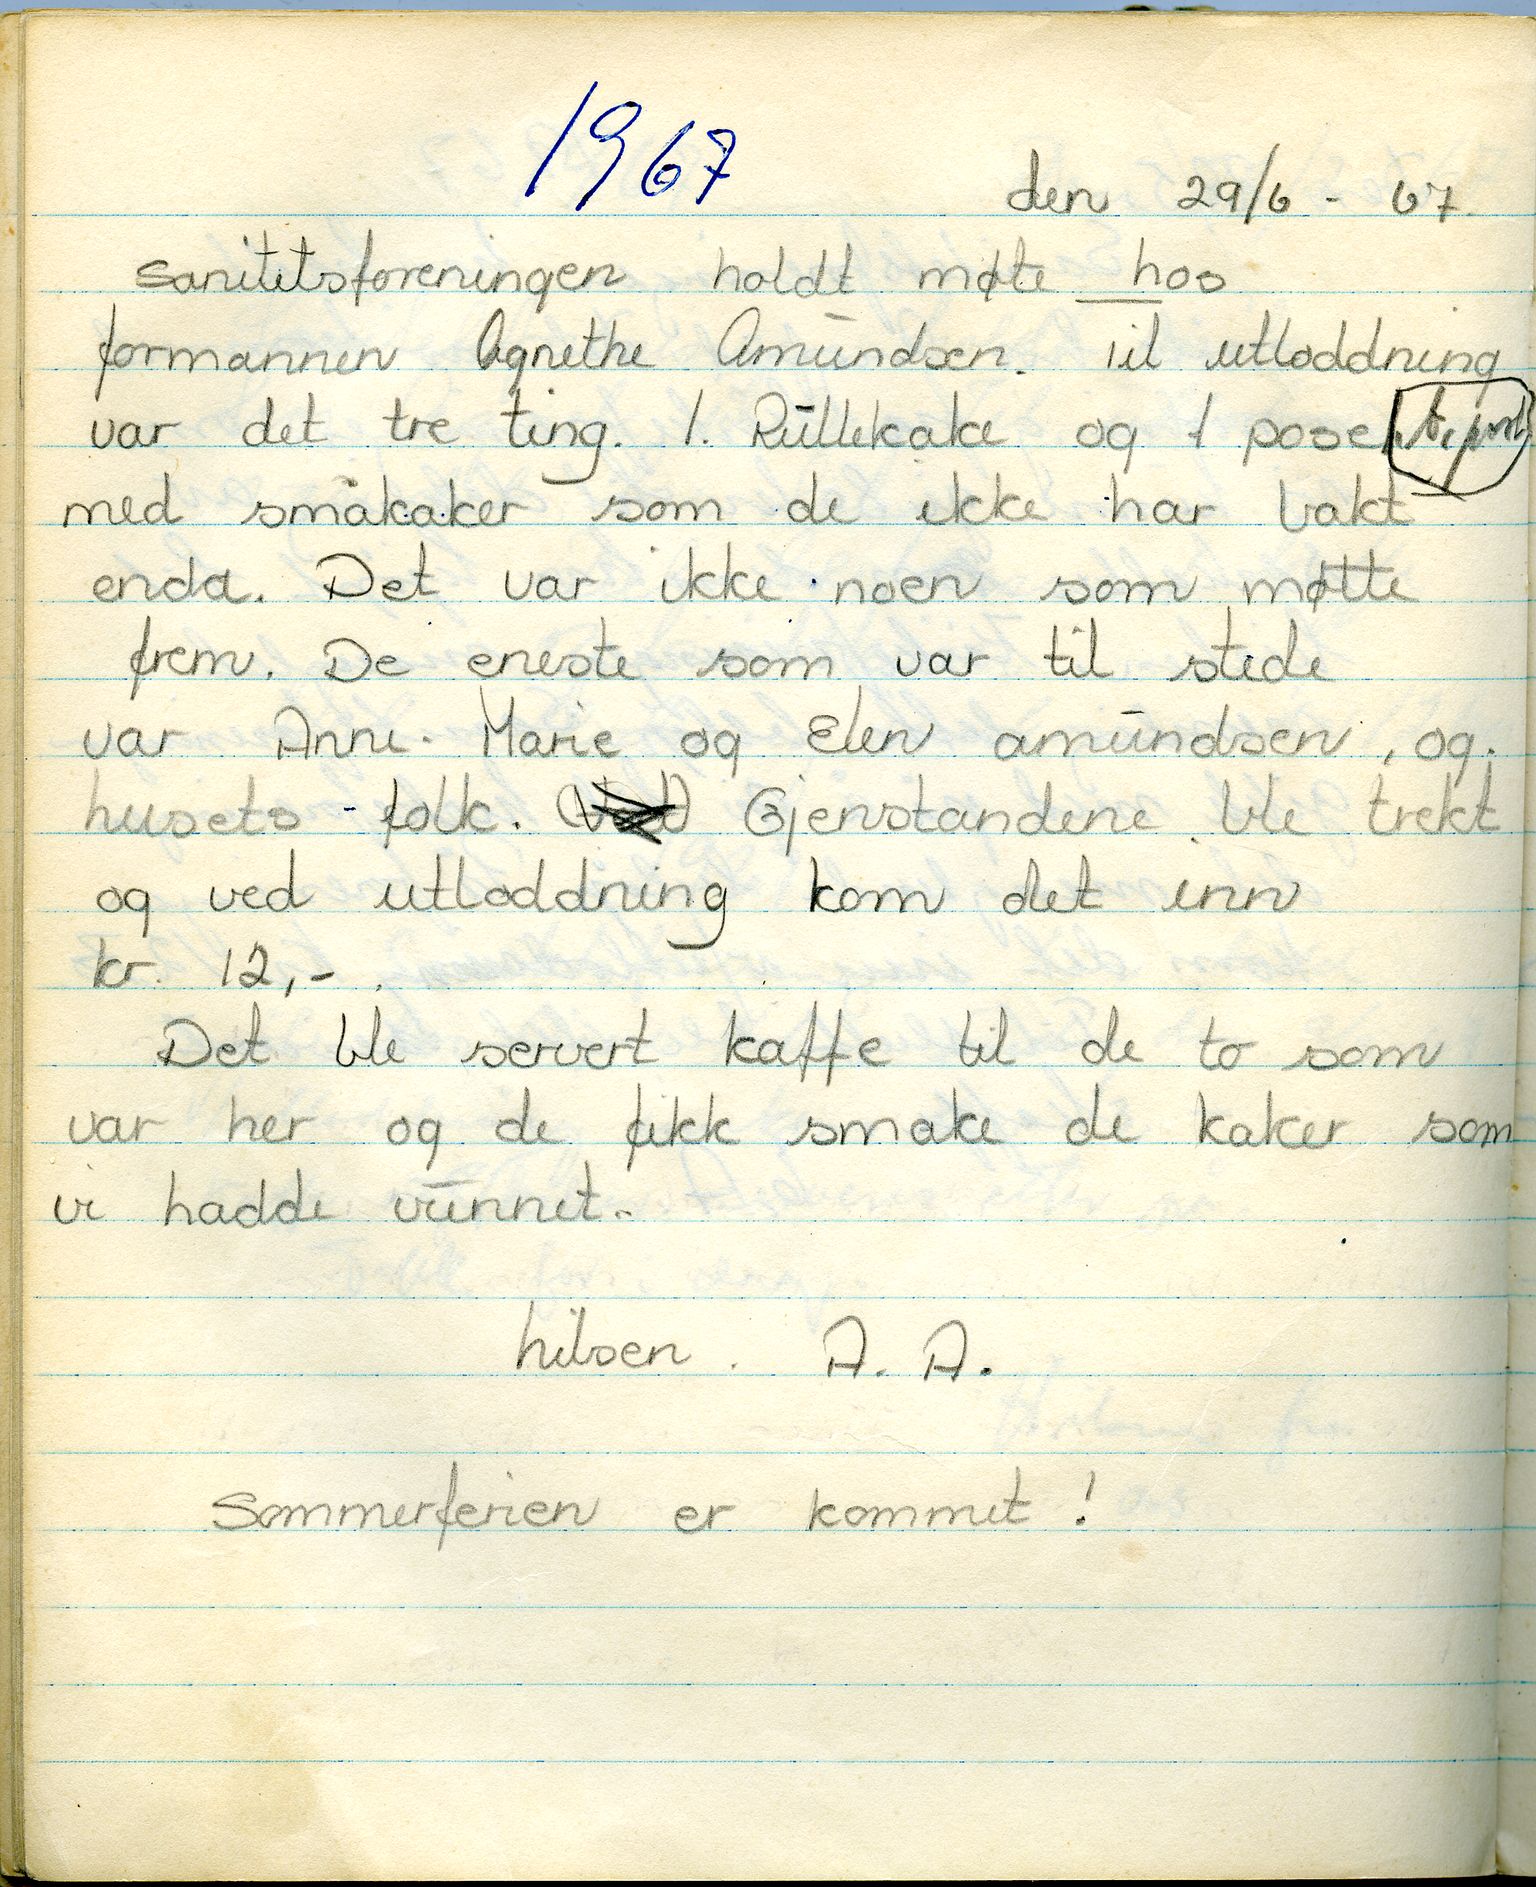 1967
den 29/6 - 67.
Sanitetsforeningen holdt møte hos
formannen Agnethe Amundsen. Til utloddning
var det tre ting. 1. Rullekake og 1 pose
med småkaker som de ikke har bakt
enda. Det var ikke noen som møtte
frem. De eneste som var til stede
var Anne-Marie og Elen amundsen, og.
husets - folk. Gjenstandene ble trekt
og ved utloddning kom det inn
kr. 12,-.
Det ble servert kaffe til de to som
var her og de fikk smake de kaker som
vi hadde vunnet.
hilsen. A. A.
Sommerferien er kommet!